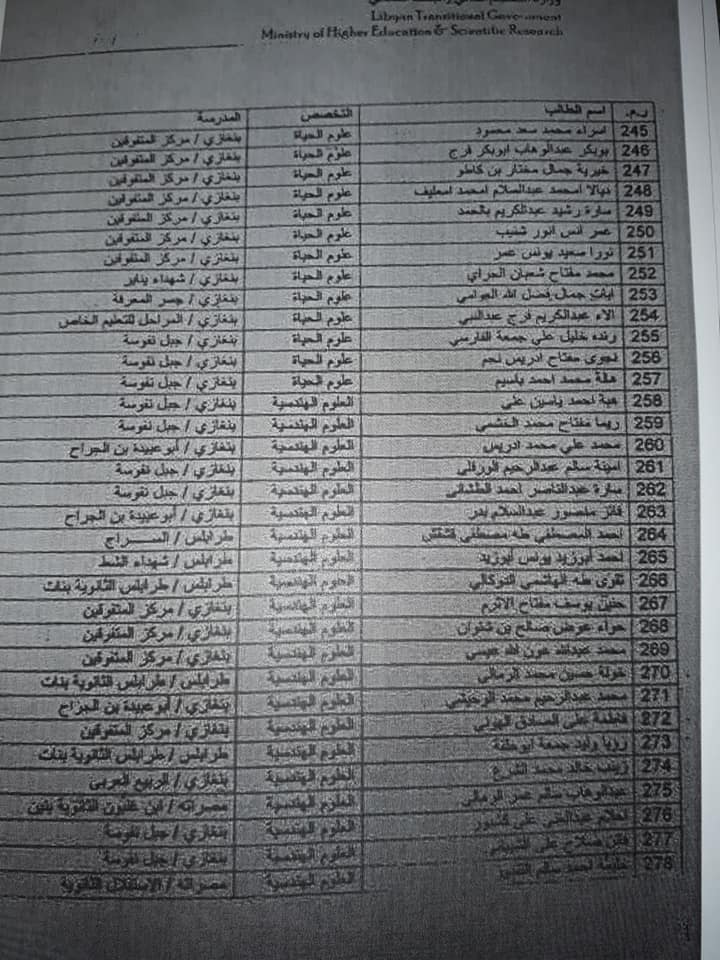 Libyan Transitional Government
Ministry of Higher Education & Scientific Research
ر.م. اسم الطالب التخصص المدرسة
245 اسراء محمد سعد محمود علوم الحياة بنغازي / مركز المتفوقين
246 بوبكر عبدالوهاب ابوبكر فرج علوم الحياة بنغازي / مركز المتفوقين
247 خيرية جمال مختار بن كاطو علوم الحياة بنغازي / مركز المتفوقين
248 ديالا امحمد عبدالسلام امحمد امعليف علوم الحياة بنغازي / مركز المتفوقين
249 سارة رشيد عبدالكريم بالحمد علوم الحياة بنغازي / مركز المتفوقين
250 عمر انس انور شنيب علوم الحياة بنغازي / مركز المتفوقين
251 نورا سعيد يونس عمر علوم الحياة بنغازي / مركز المتفوقين
252 محمد مفتاح شعبان الحراي علوم الحياة بنغازي / شهداء يناير
253 ايات جمال فضل الله العوامي علوم الحياة بنغازي / جسر المعرفة
254 الاء عبدالكريم فرج عبدالنبي علوم الحياة بنغازي / المراحل للتعليم الخاص
255 رنده خليل علي جمعة الفارسي علوم الحياة بنغازي / جبل نفوسة
256 نجوى مفتاح ادريس نجم علوم الحياة بنغازي / جبل نفوسة
257 هالة محمد احمد باسيم علوم الحياة بنغازي / جبل نفوسة
258 هبة احمد ياسين علي العلوم الهندسية بنغازي / جبل نفوسة
259 ريما مفتاح محمد العشمي العلوم الهندسية بنغازي / جبل نفوسة
260 محمد علي محمد ادريس العلوم الهندسية بنغازي / أبو عبيدة بن الجراح
261 امينة سالم عبدالرحيم الورفلي العلوم الهندسية بنغازي / جبل نفوسة
262 سارة عبدالناصر احمد الطشاني العلوم الهندسية بنغازي / جبل نفوسة
263 فائز منصور عبدالسلام بدر العلوم الهندسية بنغازي / أبو عبيدة بن الجراح
264 احمد المصطفى طه مصطفى العلوم الهندسية طرابلس / الســـــراج
265 احمد أبوزيد يونس أبوزيد العلوم الهندسية طرابلس / شهداء الشط
266 تقوى طه الهاشمي التوكالي العلوم الهندسية طرابلس / طرابلس الثانوية بنات
267 حنين يوسف مفتاح الاثرم العلوم الهندسية بنغازي / مركز المتفوقين
268 حواء عوض صالح بن شتوان العلوم الهندسية بنغازي / مركز المتفوقين
269 محمد عبدالله عون الله عيسي العلوم الهندسية بنغازي / مركز المتفوقين
270 خولة حسين محمد الرمالي العلوم الهندسية طرابلس / طرابلس الثانوية بنات
271 محمد عبدالرحيم محمد العلوم الهندسية بنغازي / أبو عبيدة بن الجراح
272 فاطمة علي الصادق الهوني العلوم الهندسية بنغازي / مركز المتفوقين
273 رؤيا وليد جمعة ابوحلقة العلوم الهندسية طرابلس / طرابلس الثانوية بنات
274 زينب خالد محمد الشرع العلوم الهندسية بنغازي / الربيع العربي
275 عبدالوهاب سالم عمر الرمالي العلوم الهندسية مصراته / ابن غلبون الثانوية بنين
276 احلام عبدالغني علي العلوم الهندسية بنغازي / جبل نفوسة
277 فاتن صلاح علي العلوم الهندسية بنغازي / جبل نفوسة
278 عائشة احمد سالم العلوم الهندسية مصراته / الاستقلال الثانوية